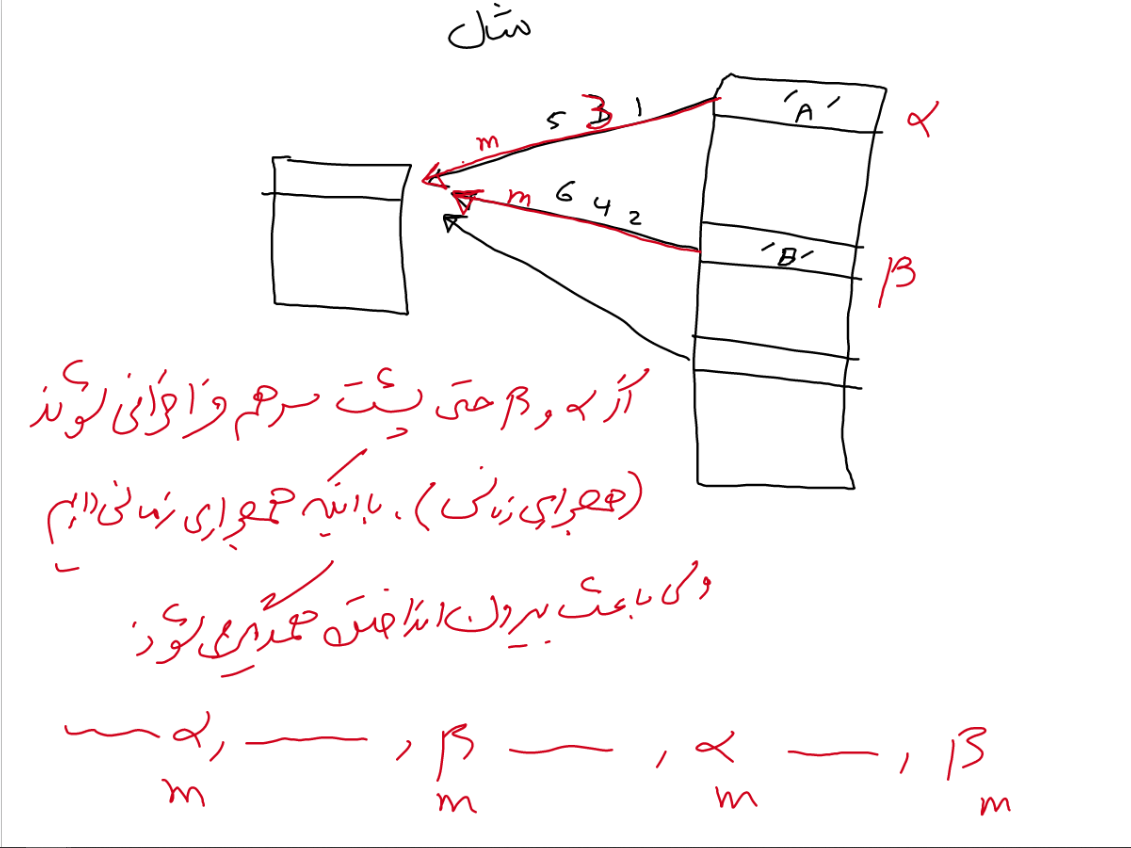 مثال
'A' α
1 3 5 m
2 4 6 m
'B' β
اگر α و β حتی پشت سر هم فراخوانی شوند
(همجواری زمانی). با اینکه همجواری زمانی داریم
ولی باعث بیرون انداختن همدیگر می شوند
α, , β , α , β
m m m m